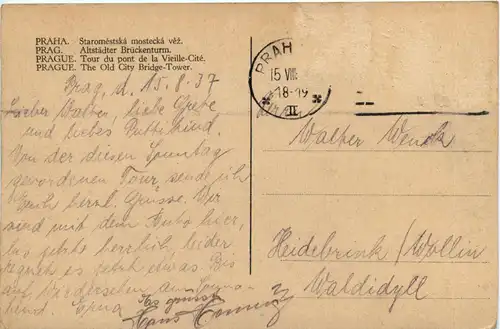 PRAHA. Staroměstská mostecká věž.
PRAG. Altstädter Brückenturm.
PRAGUE. Tour du pont de la Vieille-Cité.
PRAGUE. The Old City Bridge-Tower.
PRAH
15 VIII
18-19
II
Prag, d. 15.8.37
Lieber Walter, liebe Grete
und liebes Puttikind.
Von der diesen Sonntag
gewordenen Tour sende ich
Euch herzl. Grüsse. Wir
sind mit dem Auto hier,
herrlich, leider
regnet es jetzt etwas. Bis
auf Wiedersehen am
bend. Erna
Es grüsst
Hans
Walter Wenck
Heidebrink / Wollin
Waldidyll